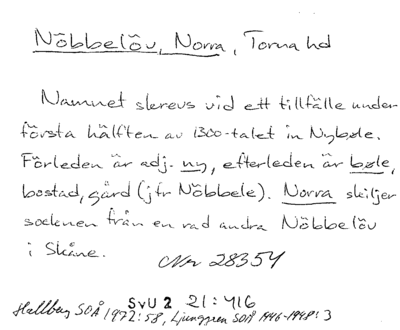 Nöbbelöv, Norra, Torna hd
Namnet skrevs vid ett tillfälle under
första hälften av 1300-talet in Nybøle.
Förleden är adj. ny, efterleden är bøle,
bostad, gård (jfr Nöbbele). Norra skiljer
socknen från en rad andra Nöbbelöv
i Skåne.
Nr 28354
SvU 2 21:416
Hallberg SOÅ 1972:58, Ljunggren SOÅ 1946-1948:3